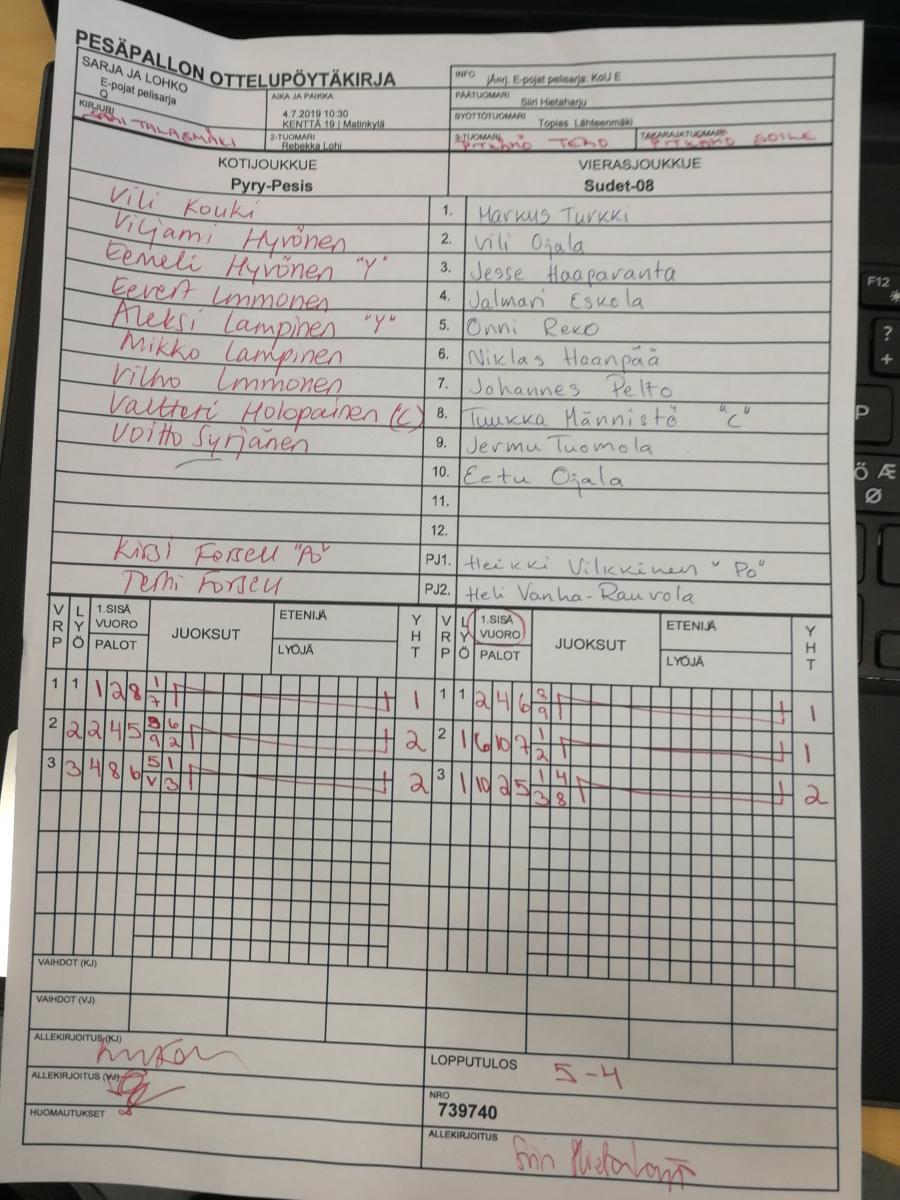 PESÄPALLON OTTELUPÖYTÄKIRJA
SARJA JA LOHKO
E-pojat pelisarja
Q
KIRJURI
SAMI TALASMÄKI
AIKA JA PAIKKA
4.7.2019 10:30
KENTTÄ 19 | Matinkylä
2-TUOMARI
Rebekka Lohi
INFO jÄarj. E-pojat pelisarja: KoU E
PÄÄTUOMARI Siiri Hietaharju
SYÖTTÖTUOMARI Topias Lähteenmäki
3-TUOMARI TAKARAJATUOMARI
KOTIJOUKKUE VIERASJOUKKUE
Pyry-Pesis Sudet-08
Vili Kouki 1. Markus Turkki
Viljami Hyvönen 2. Vili Ojala
Eemeli Hyvönen "Y" 3. Jesse Haaparanta
Eevert Immonen 4. Jalmari Eskola
Aleksi Lampinen "Y" 5. Onni Reko
Mikko Lampinen 6. Niklas Haanpää
Vilho Immonen 7. Johannes Pelto
Valtteri Holopainen (C) 8. Tuukka Männistö "C"
Voitto Syrjänen 9. Jermu Tuomola
10. Eetu Ojala
11.
12.
Kirsi Forsell "Po" PJ1. Heikki Vilkkinen "Po"
Temi Forsell PJ2. Heli Vanha-Rauvola
VRP LYÖ 1.SISÄ VUORO PALOT JUOKSUT ETENIJÄ LYÖJÄ YHT VRP LYÖ 1.SISÄ VUORO PALOT JUOKSUT ETENIJÄ LYÖJÄ YHT
1 1 1 2 8 1 7 1 1 1 2 4 6 8 9 1
2 2 2 4 5 3 6 9 2 2 2 1 6 10 7 1 2 1
3 3 4 8 6 5 1 V 3 2 3 1 10 2 5 1 4 3 8 2
VAIHDOT (KJ)
VAIHDOT (VJ)
ALLEKIRJOITUS (KJ)
ALLEKIRJOITUS (VJ)
HUOMAUTUKSET
LOPPUTULOS 5-4
NRO
739740
ALLEKIRJOITUS